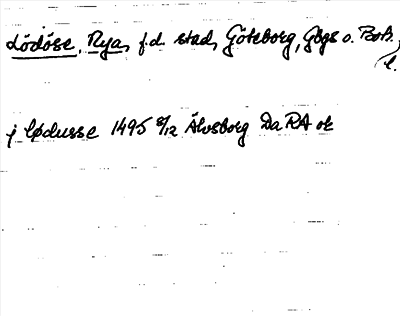 Lödöse, Nya, f.d. stad, Göteborg, Gbgs o. Boh.
l.
j lødusse 1495 8/12 Älvsborg DaRA or